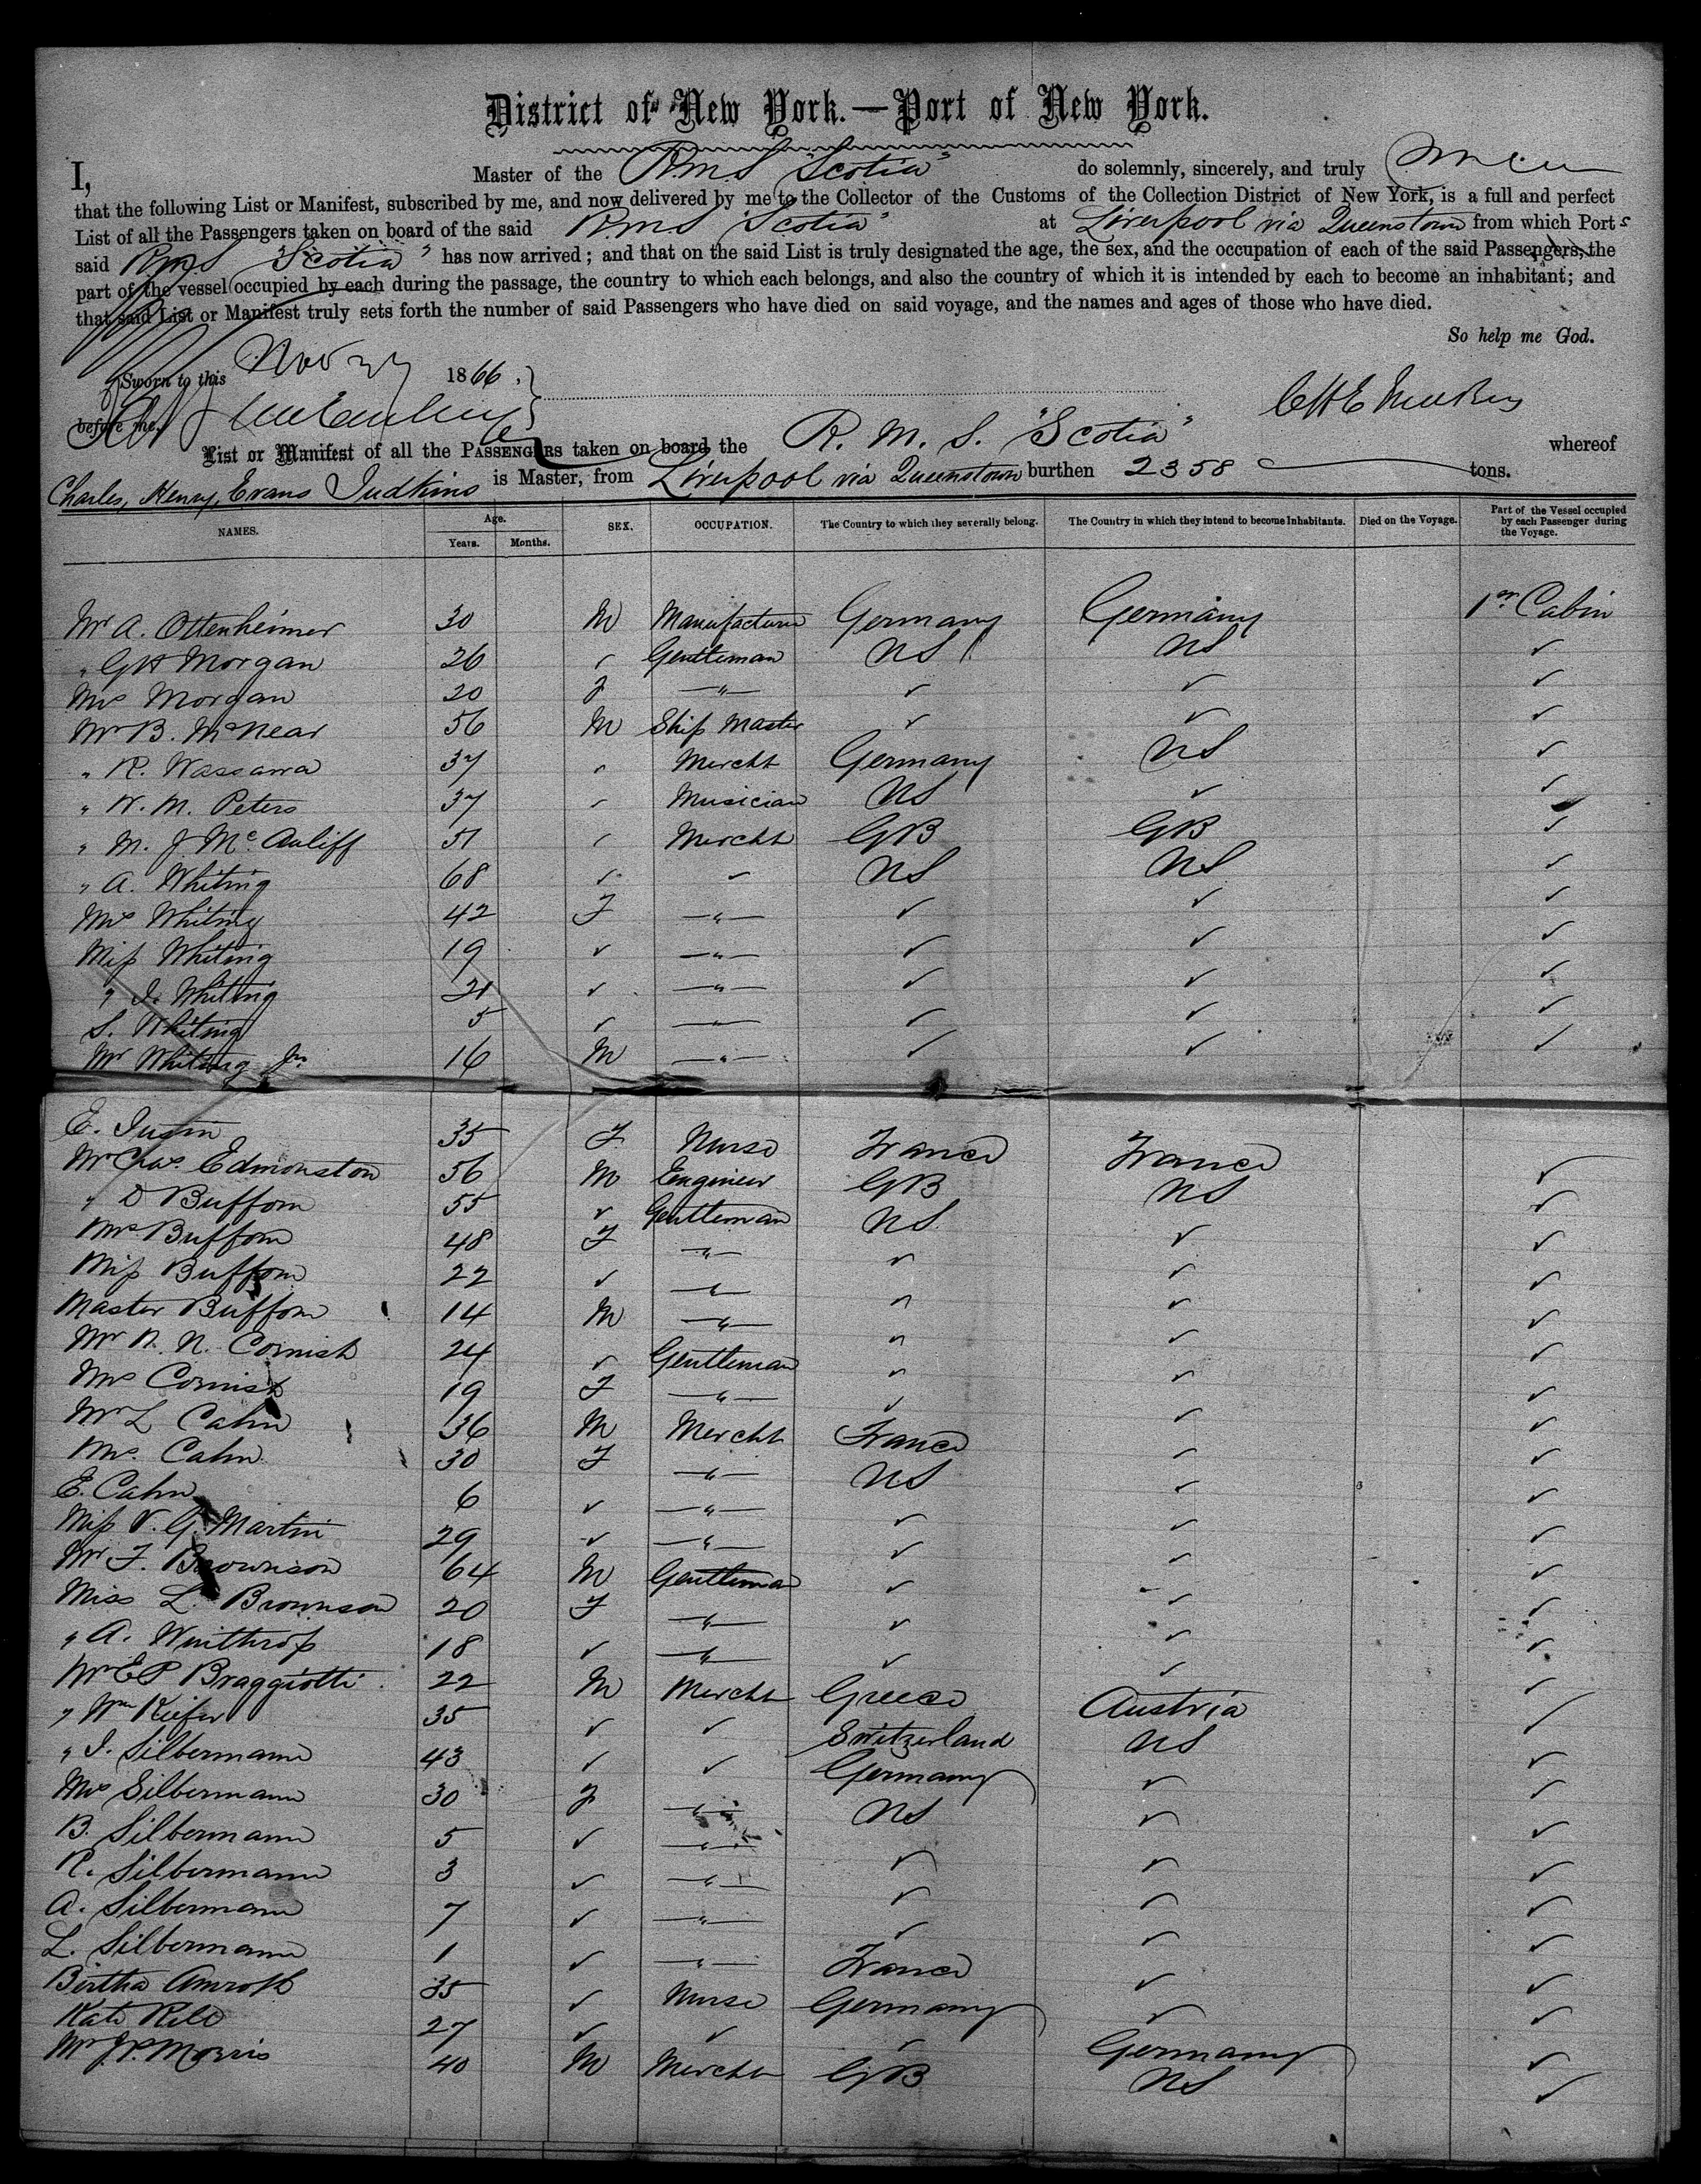 District of New York.—Port of New York.
I, Master of the RMS "Scotia" do solemnly, sincerely, and truly
that the following List or Manifest, subscribed by me, and now delivered by me to the Collector of the Customs of the Collection District of New York, is a full and perfect
List of all the Passengers taken on board of the said RMS Scotia" at Liverpool via Queenstown from which Ports
said RMS "Scotia" has now arrived; and that on the said List is truly designated the age, the sex, and the occupation of each of the said Passengers, the
part of the vessel occupied by each during the passage, the country to which each belongs, and also the country of which it is intended by each to become an inhabitant; and
that said List or Manifest truly sets forth the number of said Passengers who have died on said voyage, and the names and ages of those who have died.
So help me God.
Sworn to this Nov 27 1866,
before me,
List or Manifest of all the PASSENGERS taken on board the R. M. S. "Scotia" whereof
Charles, Henry, Evans Judkins is Master, from Liverpool via Queenstown burthen 2358 tons.
NAMES. Age. Years. Months. SEX. OCCUPATION. The Country to which they severally belong. The Country in which they intend to become Inhabitants. Died on the Voyage. Part of the Vessel occupied by each Passenger during the Voyage.
Mr A. Ottenheimer 30 M Manufacturer Germany Germany 1st Cabin
" GH Morgan 26 ✓ Gentleman US US ✓
Mrs Morgan 20 F —"— ✓ ✓ ✓
Mr B. McNear 56 M Ship Master ✓ ✓ ✓
" R. Wassawa 37 ✓ Mercht Germany US ✓
" W. M. Peters 37 ✓ Musician US ✓ ✓
" M. J McAuliff 51 ✓ Mercht GB GB ✓
" A. Whiting 68 ✓ ✓ US US ✓
Mrs Whiting 42 F —"— ✓ ✓ ✓
Miss Whiting 19 ✓ —"— ✓ ✓ ✓
" I. Whiting 21 ✓ —"— ✓ ✓ ✓
S. Whiting 5 ✓ —"— ✓ ✓ ✓
Mr Whiting Jr. 16 M —"— ✓ ✓ ✓
E. 35 F Nurse France France ✓
Mr Chas. Edmonston 56 M Engineer GB US ✓
" D Buffom 55 ✓ Gentleman US ✓ ✓
Mrs Buffom 48 F —"— ✓ ✓ ✓
Miss Buffom 22 ✓ —"— ✓ ✓ ✓
Master Buffom 14 M —"— ✓ ✓ ✓
Mr N. N. Cornish 24 ✓ Gentleman ✓ ✓ ✓
Mrs Cornish 19 F —"— ✓ ✓ ✓
Mr L Cahn 36 M Mercht France ✓ ✓
Mrs. Cahn 30 F —"— US ✓ ✓
E. Cahn 6 ✓ —"— ✓ ✓ ✓
Miss V. G. Martin 29 ✓ —"— ✓ ✓ ✓
Mr F. Brownson 64 M Gentleman ✓ ✓ ✓
Miss L. Brownson 20 F —"— ✓ ✓ ✓
" A. Winthrop 18 ✓ —"— ✓ ✓ ✓
Mr EP Braggiotti 22 M Mercht Greece Austria ✓
" Wm Kiefer 35 ✓ ✓ Switzerland US ✓
" I. Silbermann 43 ✓ ✓ Germany ✓ ✓
Mrs Silbermann 30 F —"— US ✓ ✓
B. Silbermann 5 ✓ —"— ✓ ✓ ✓
R. Silbermann 3 ✓ —"— ✓ ✓ ✓
A. Silbermann 7 ✓ —"— ✓ ✓ ✓
L. Silbermann 1 ✓ —"— France ✓ ✓
Bertha 35 ✓ Nurse Germany ✓ ✓
Kate 27 ✓ ✓ ✓ Germany ✓
Mr J.P. Morris 40 M Mercht GB US ✓